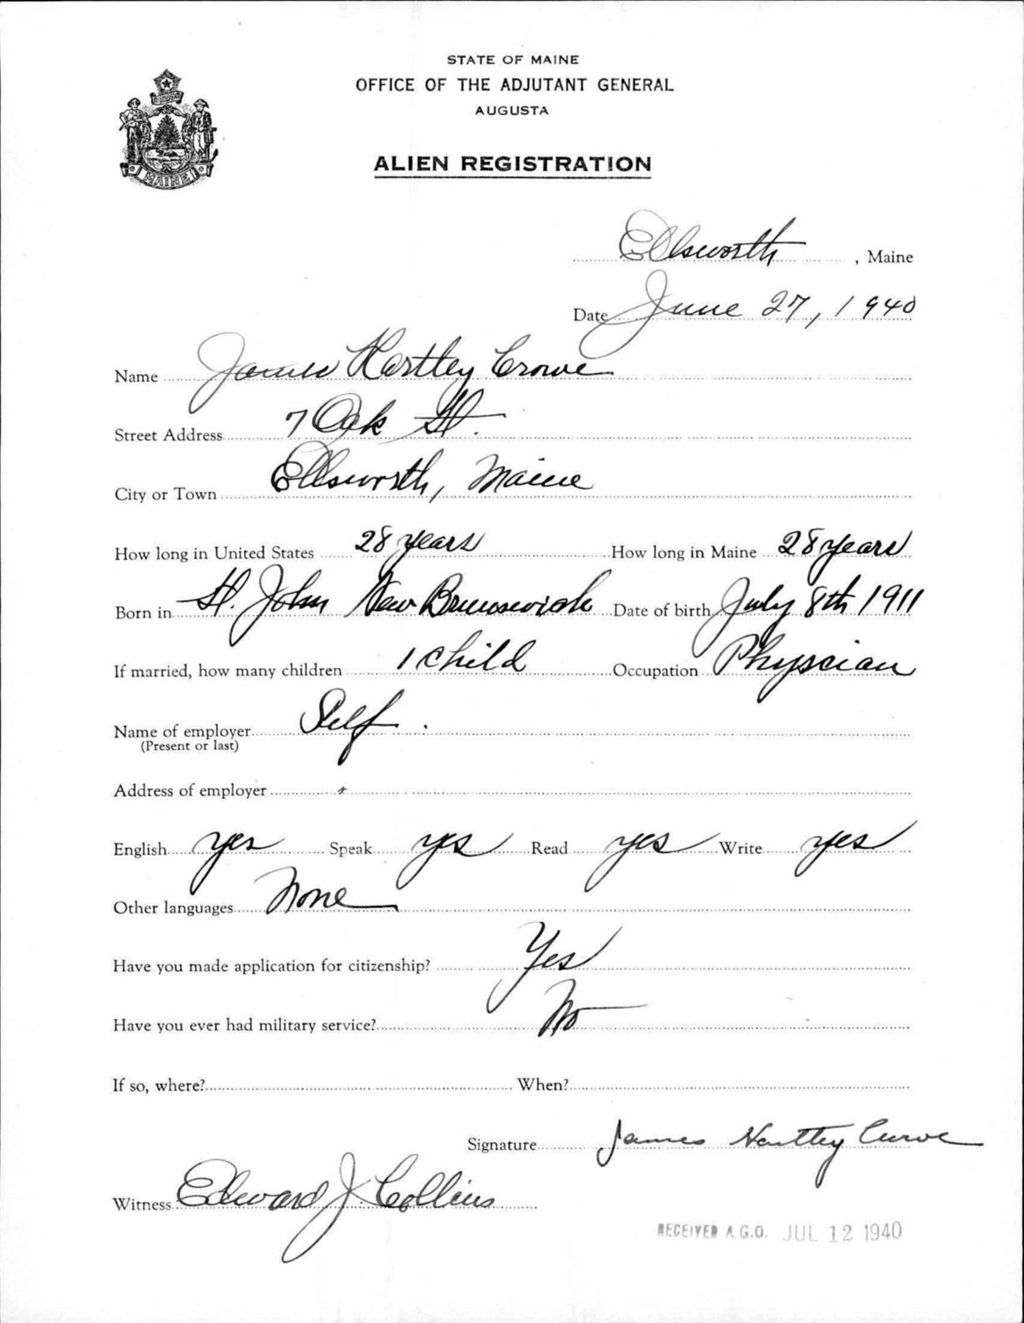 STATE OF MAINE
OFFICE OF THE ADJUTANT GENERAL
AUGUSTA
ALIEN REGISTRATION
MAINE
Ellsworth, Maine
Date June 27, 1940
Name James Hartley Crowe
Street Address 7 Oak St.
City or Town Ellsworth, Maine
How long in United States 28 years How long in Maine 28 years
Born in St. John New Brunswick Date of birth July 8th 1911
If married, how many children 1 child Occupation Physcian
Name of employer Self.
(Present or last)
Address of employer
English yes Speak yes Read yes Write yes
Other languages None
Have you made application for citizenship? Yes
Have you ever had military service? No
If so, where? When?
Signature James Hartley Crowe
Witness Edward J. Collins
RECEIVED A.G.O. JUL 12 1940